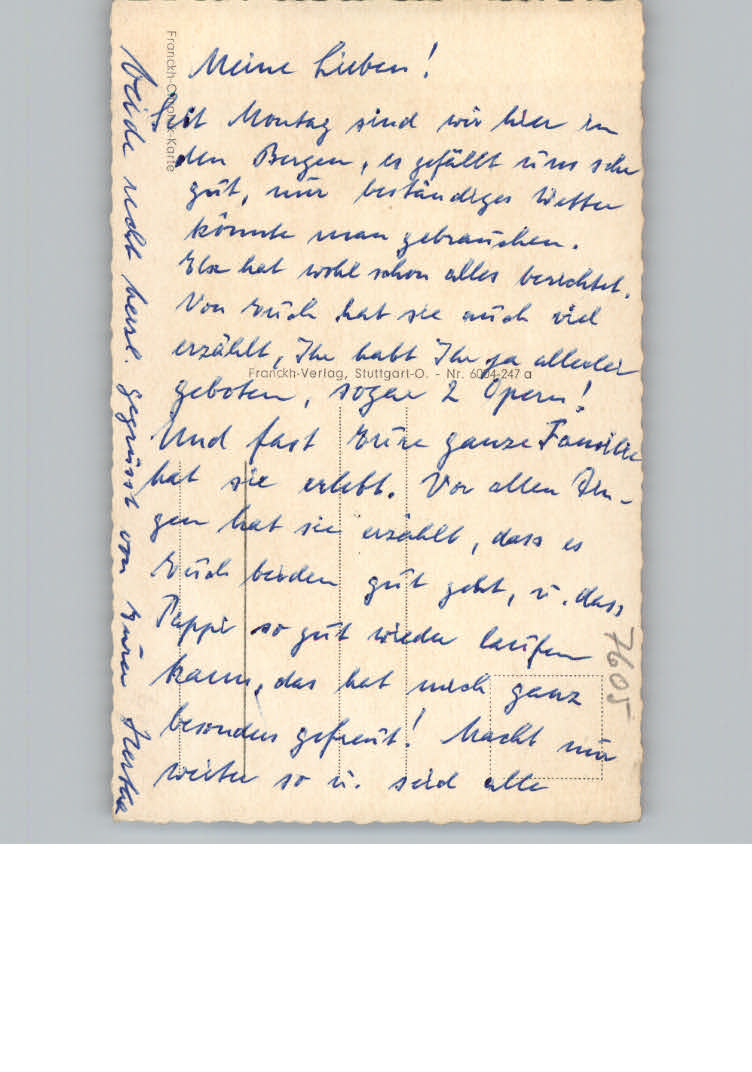 Meine Lieben!
Seit Montag sind wir hier in
den Bergen, es gefällt uns sehr
gut, nur beständiges Wetter
könnte man gebrauchen.
Ilse hat wohl schon alles berichtet.
Von Euch hat sie auch viel
erzählt, Ihr habt Ihr ja allerlei
geboten, sogar 2 Opern!
Und fast Eure ganze Familie
hat sie erlebt. Vor allen Din-
gen hat sie erzählt, dass es
Euch beiden gut geht, u. dass
Pappi so gut wieder laufen
kann, das hat mich ganz
besonders gefreut! Macht nur
weiter so u. seid alle
beide recht herzl. gegrüsst von Eurer Herta
Franckh-Karte
Franckh-Verlag, Stuttgart-O. - Nr. 6004-247 a
7605